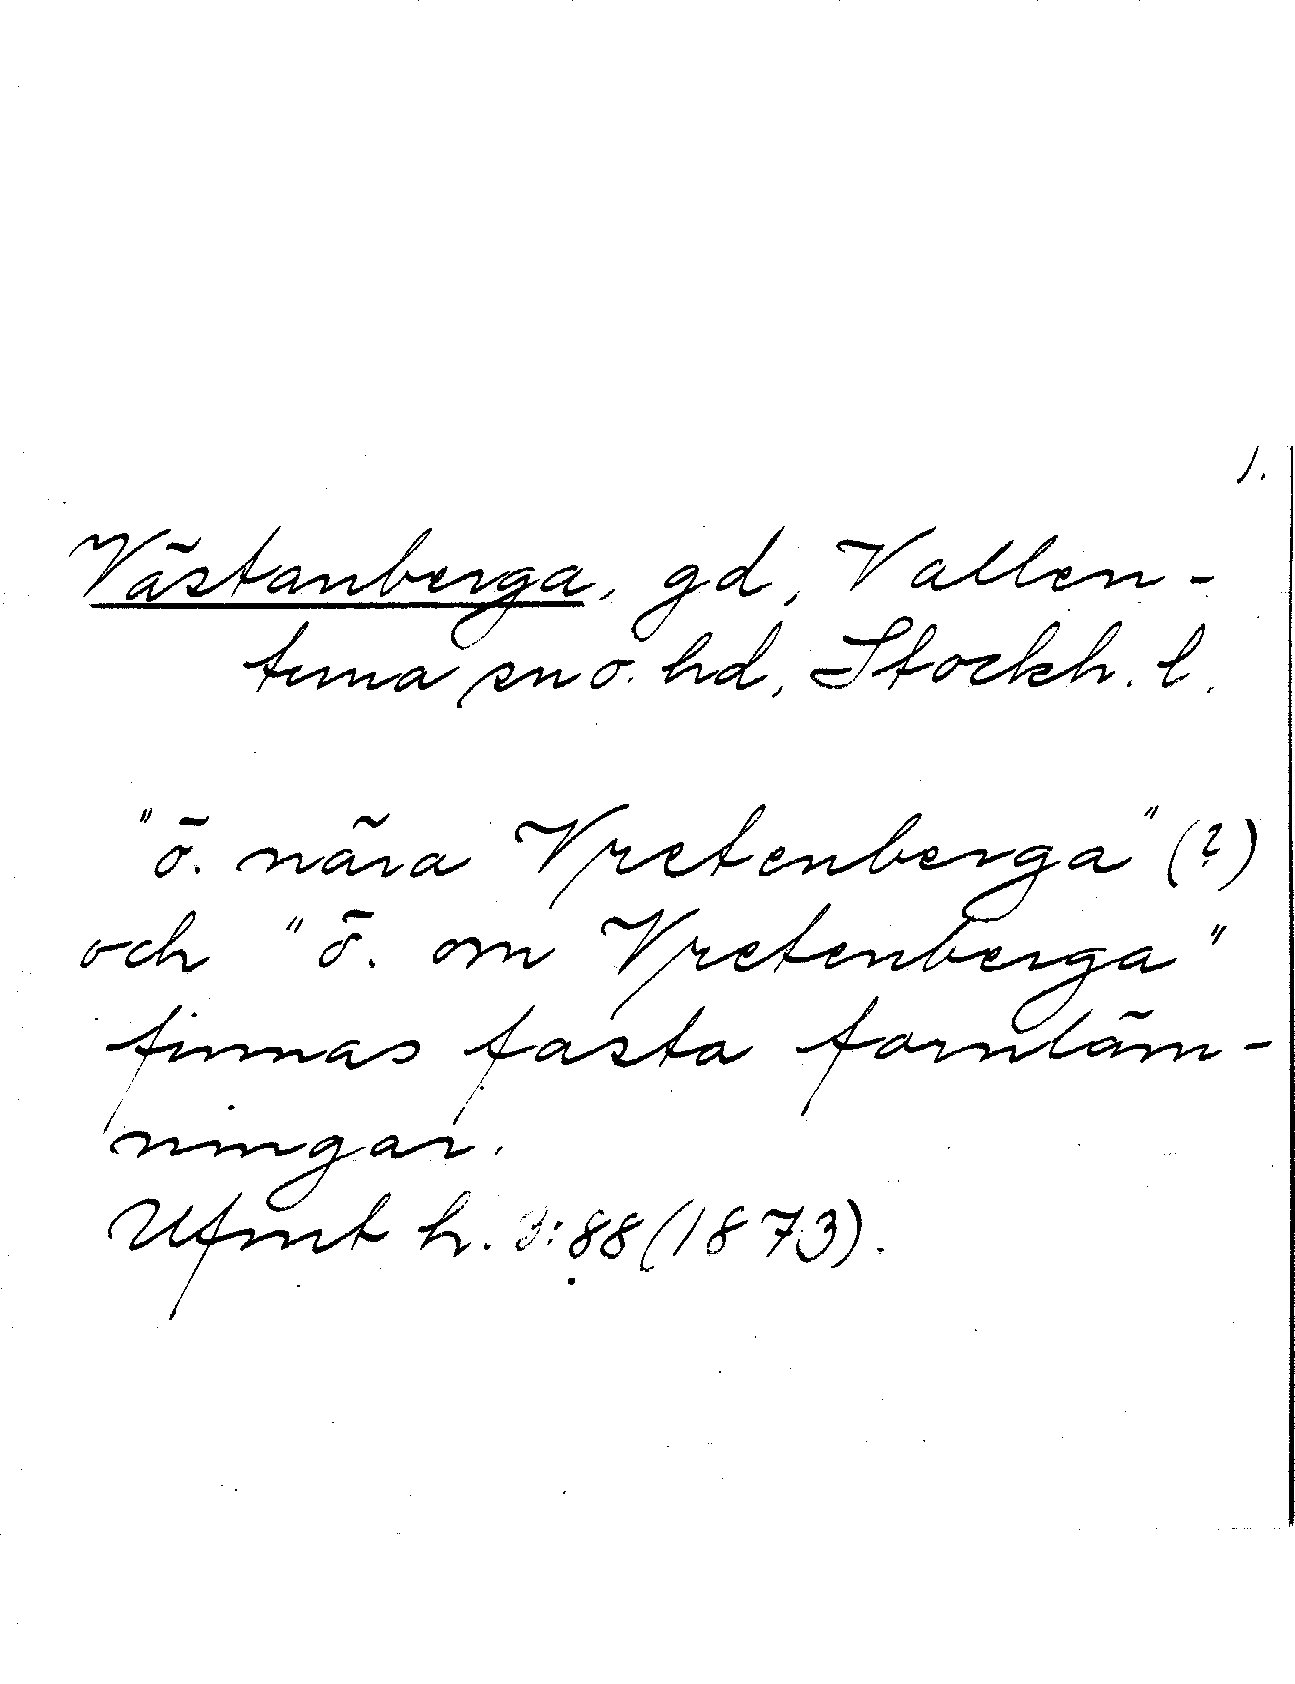 1.
Västanberga, gd, Vallen-
tuna sn o. hd, Stockh. l.
"ö. nära Vretenberga" (?)
och "ö. om Vretenberga"
finnas fasta fornläm-
ningar.
Ufmt h. 3:88 (1873).